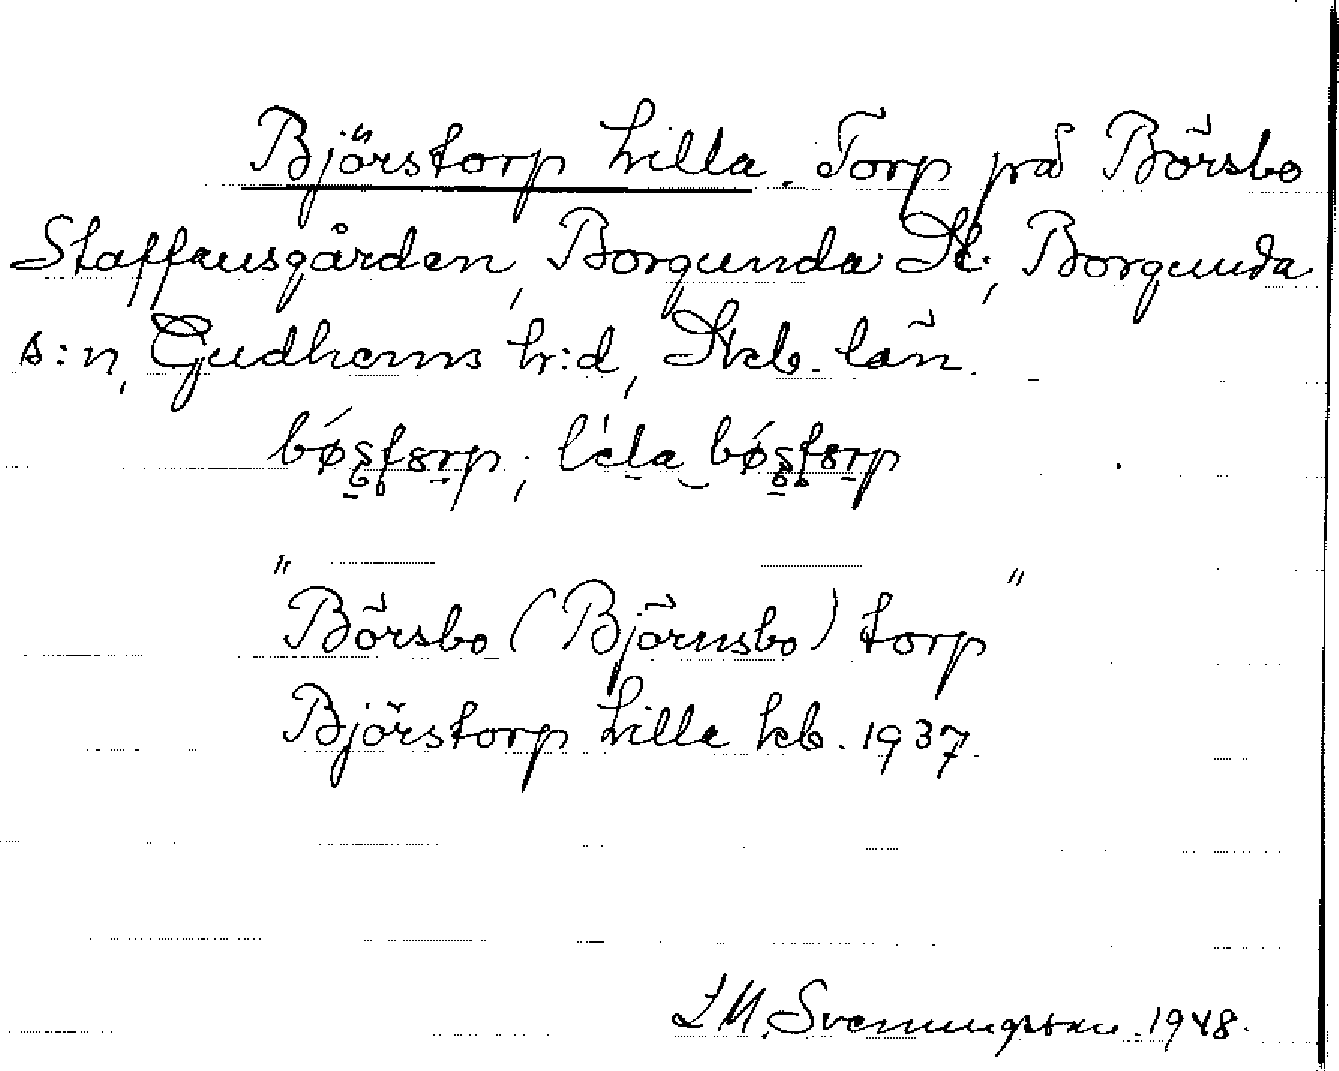 Björstorp Lilla. Torp på Börsbo
Staffansgården, Borgunda St., Borgunda
s:n, Gudhems hr:d, Skb. län.

"Börsbo (Björnsbo) torp"
Björstorp Lilla kb. 1937.
L M. Svenungsson. 1948.